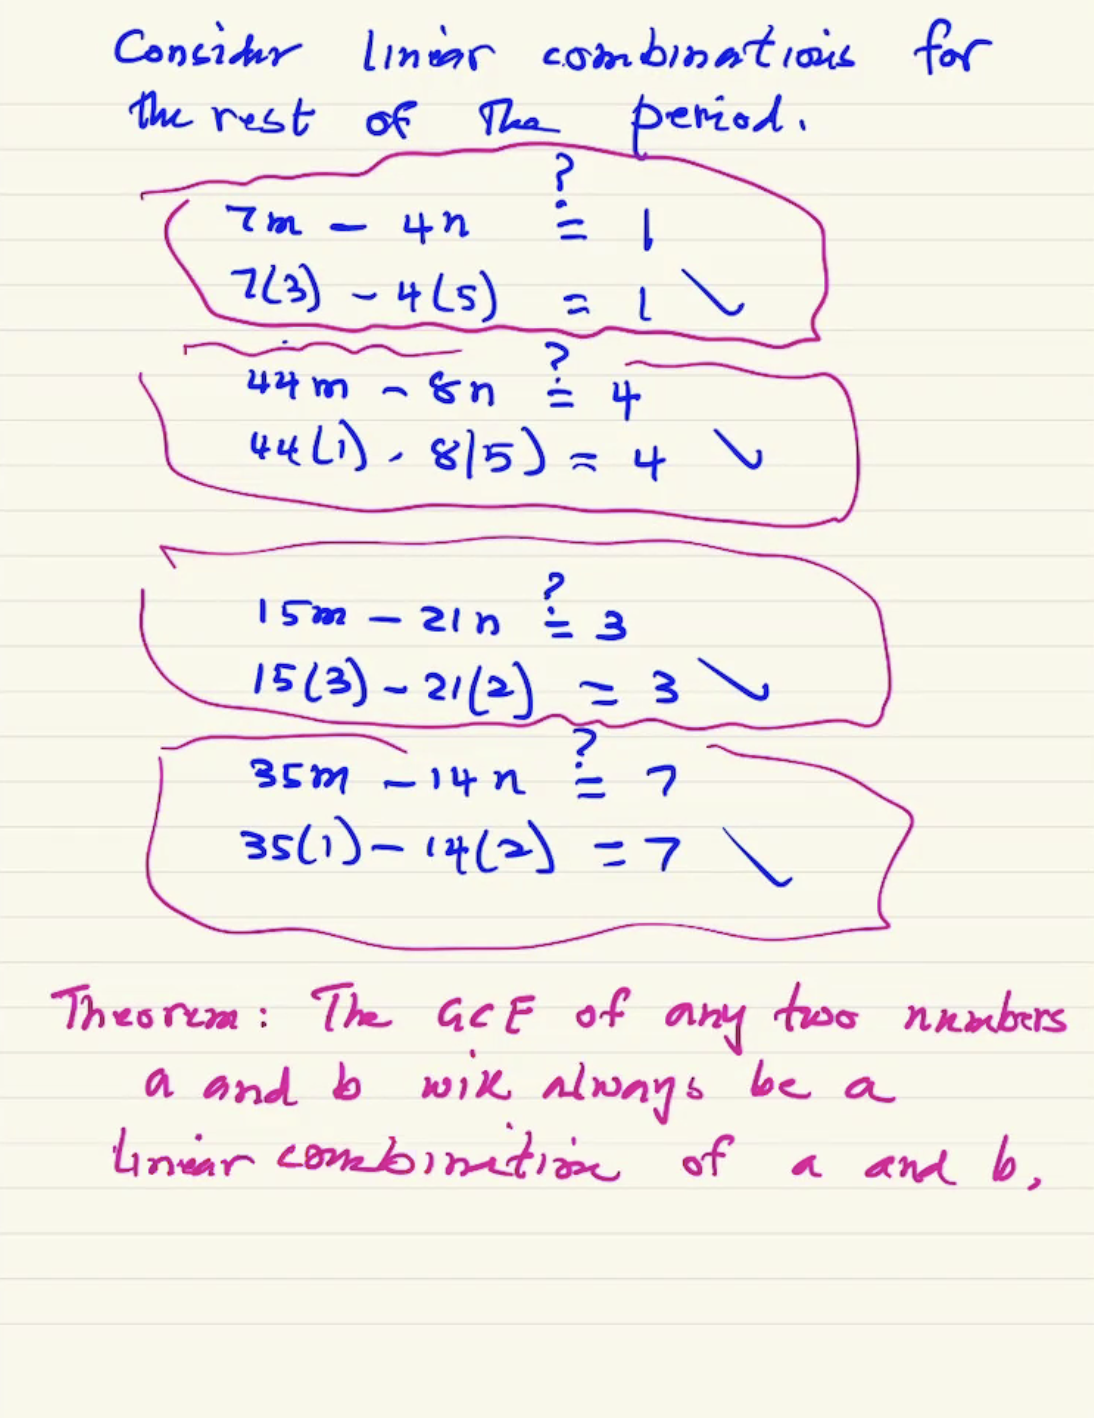 Consider linear combinations for
the rest of the period.
7m - 4n ≟ 1
7(3) - 4(5) = 1 ✓
44m - 8n ≟ 4
44(1) - 8(5) = 4 ✓
15m - 21n ≟ 3
15(3) - 21(2) = 3 ✓
35m - 14n ≟ 7
35(1) - 14(2) = 7 ✓
Theorem: The GCF of any two numbers
a and b will always be a
linear combination of a and b.